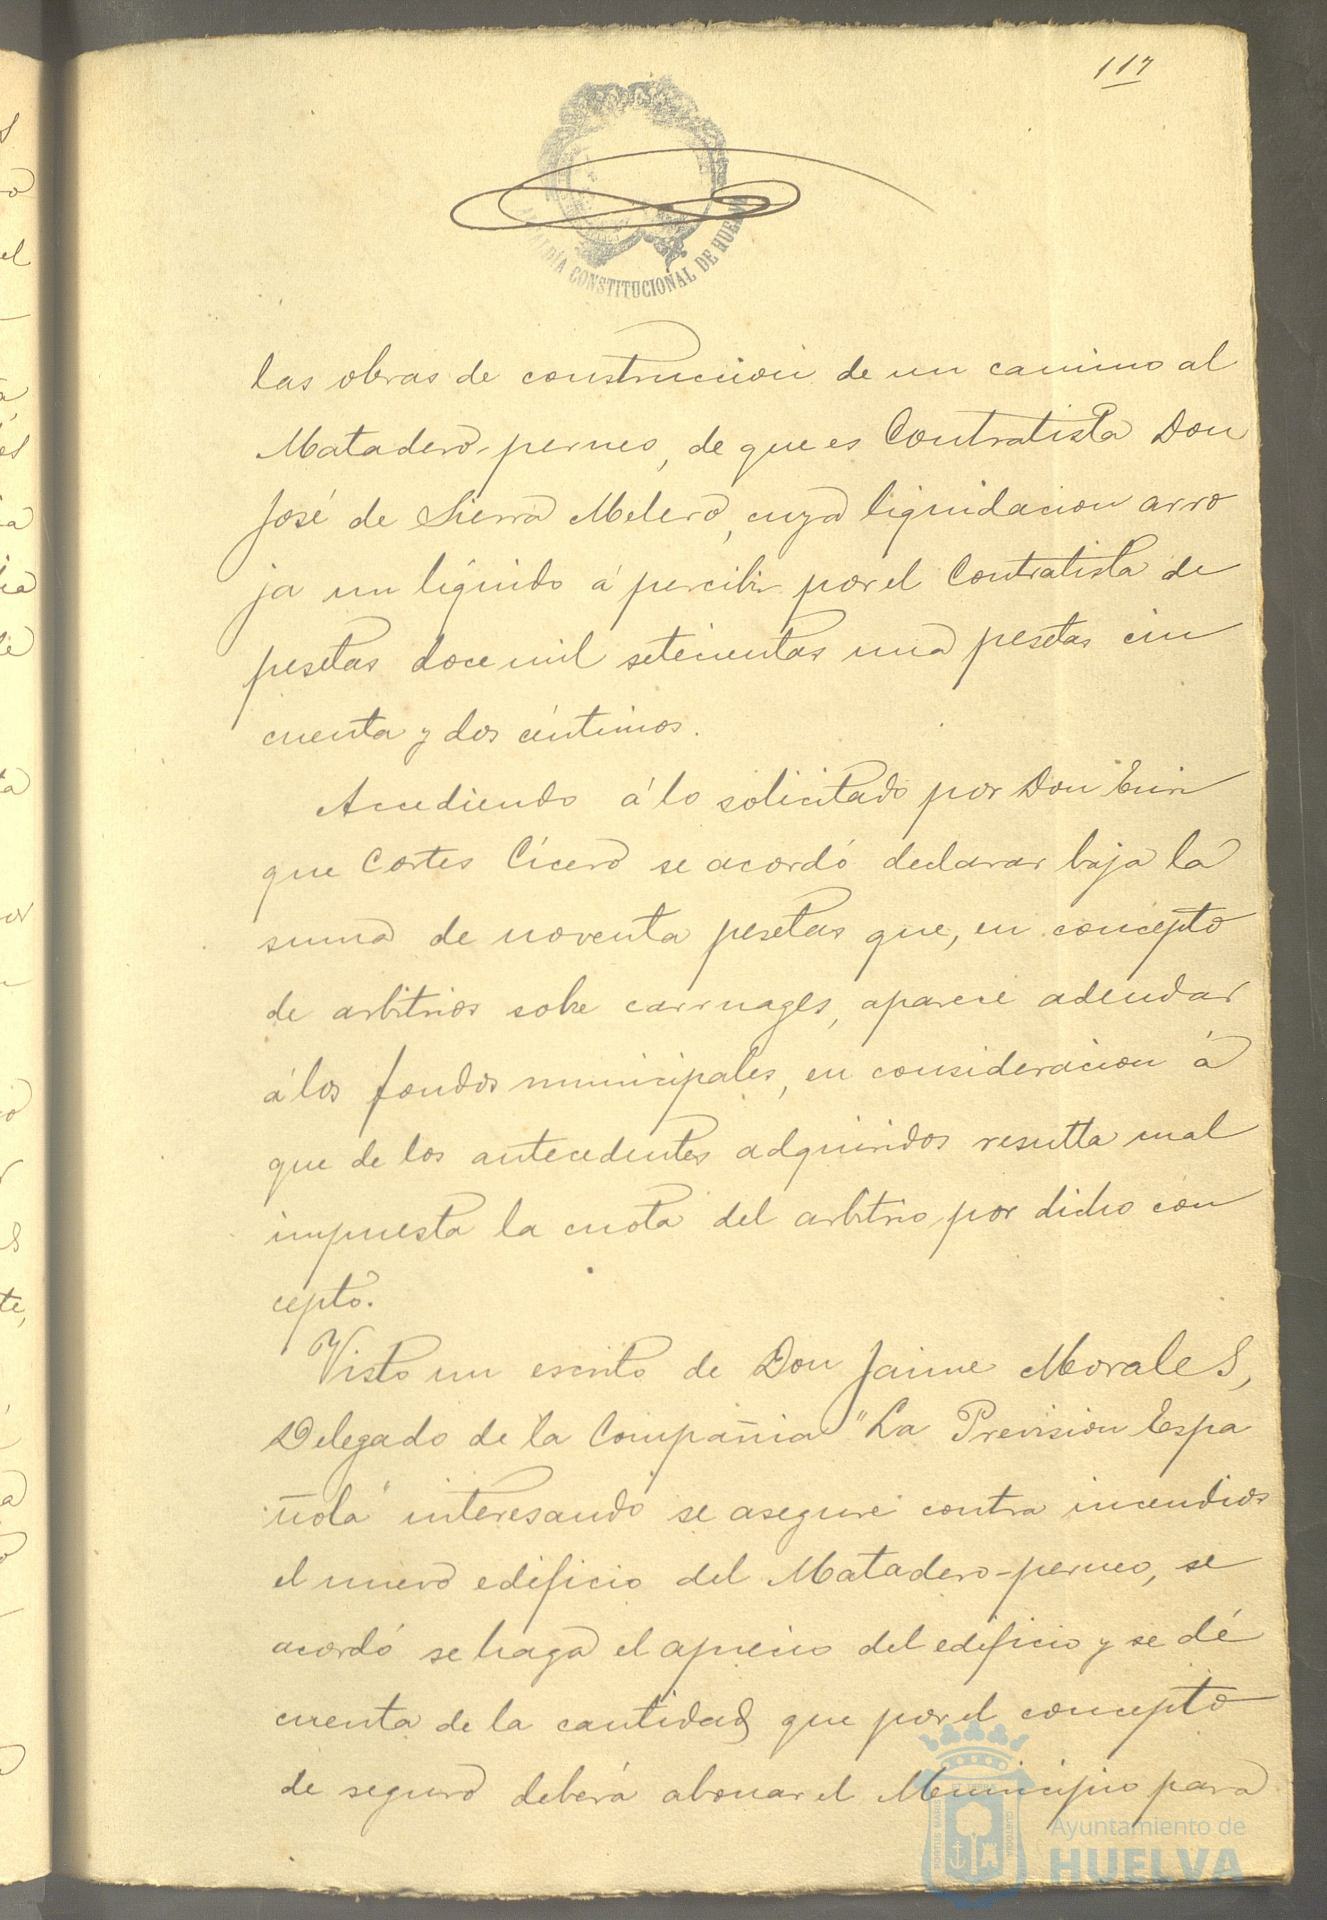 117
ALCALDÍA CONSTITUCIONAL DE HUELVA
las obras de construccion de un camino al
Matadero-perneo, de que es Contratista Don
José de Sierra Melero, cuya liquidacion arro
ja un líquido á percibir por el Contratista de
pesetas doce mil setecientas una pesetas cin
cuenta y dos céntimos.
Accediendo á lo solicitado por Don Enri
que Cortes Cícero se acordó declarar baja la
suma de noventa pesetas que, en concepto
de arbitrios sobre carruages, aparece adeudar
á los fondos municipales, en consideracion á
que de los antecedentes adquiridos resulta mal
impuesta la cuota del arbitrio por dicho con
cepto.
Visto un escrito de Don Jaime Morales,
Delegado de la Compañia "La Prevision Espa
ñola" interesando se asegure contra incendios
el nuevo edificio del Matadero-perneo, se
acordó se haga el aprecio del edificio y se dé
cuenta de la cantidad que por el concepto
de seguro deberá abonar el Municipio para
Ayuntamiento de
HUELVA